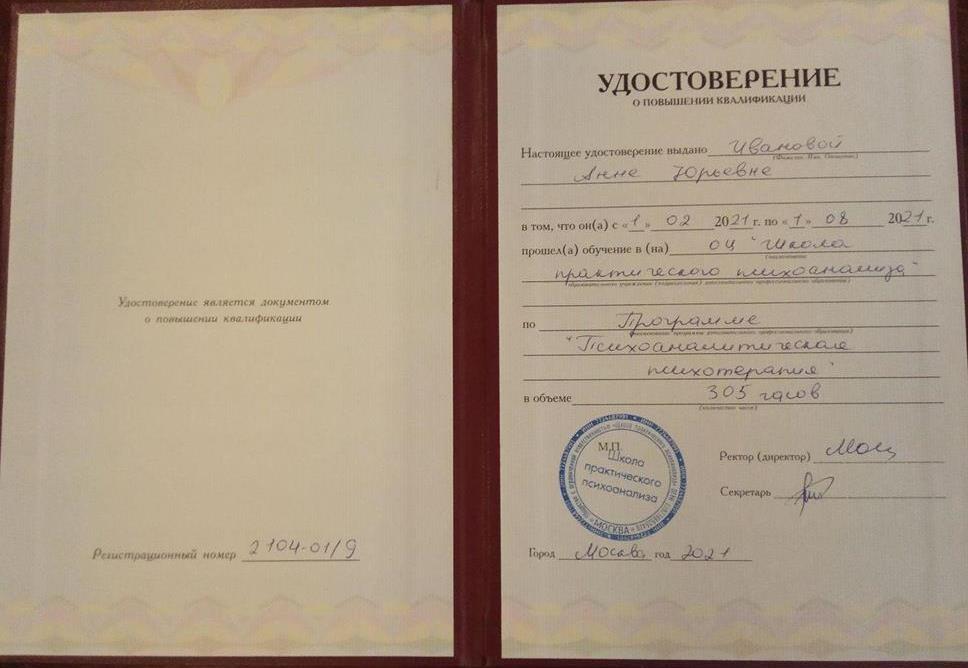 Удостоверение является документом
о повышении квалификации
Регистрационный номер 2104-01/9
УДОСТОВЕРЕНИЕ
О ПОВЫШЕНИИ КВАЛИФИКАЦИИ
Настоящее удостоверение выдано Ивановой
(Фамилия, Имя, Отчество)
Анне Юрьевне
в том, что он(а) с «1» 02 2021 г. по «1» 08 2021 г.
прошел(а) обучение в (на) ОЦ "Школа
(наименование
практического психоанализа"
образовательного учреждения (подразделения) дополнительного профессионального образования)
по Программе
(наименование программы дополнительного профессионального образования)
"Психоаналитическая
психотерапия"
в объеме 305 часов
(количество часов)
М.П.
Школа
практического
психоанализа
МОСКВА
Ректор (директор)
Секретарь
Город Москва год 2021